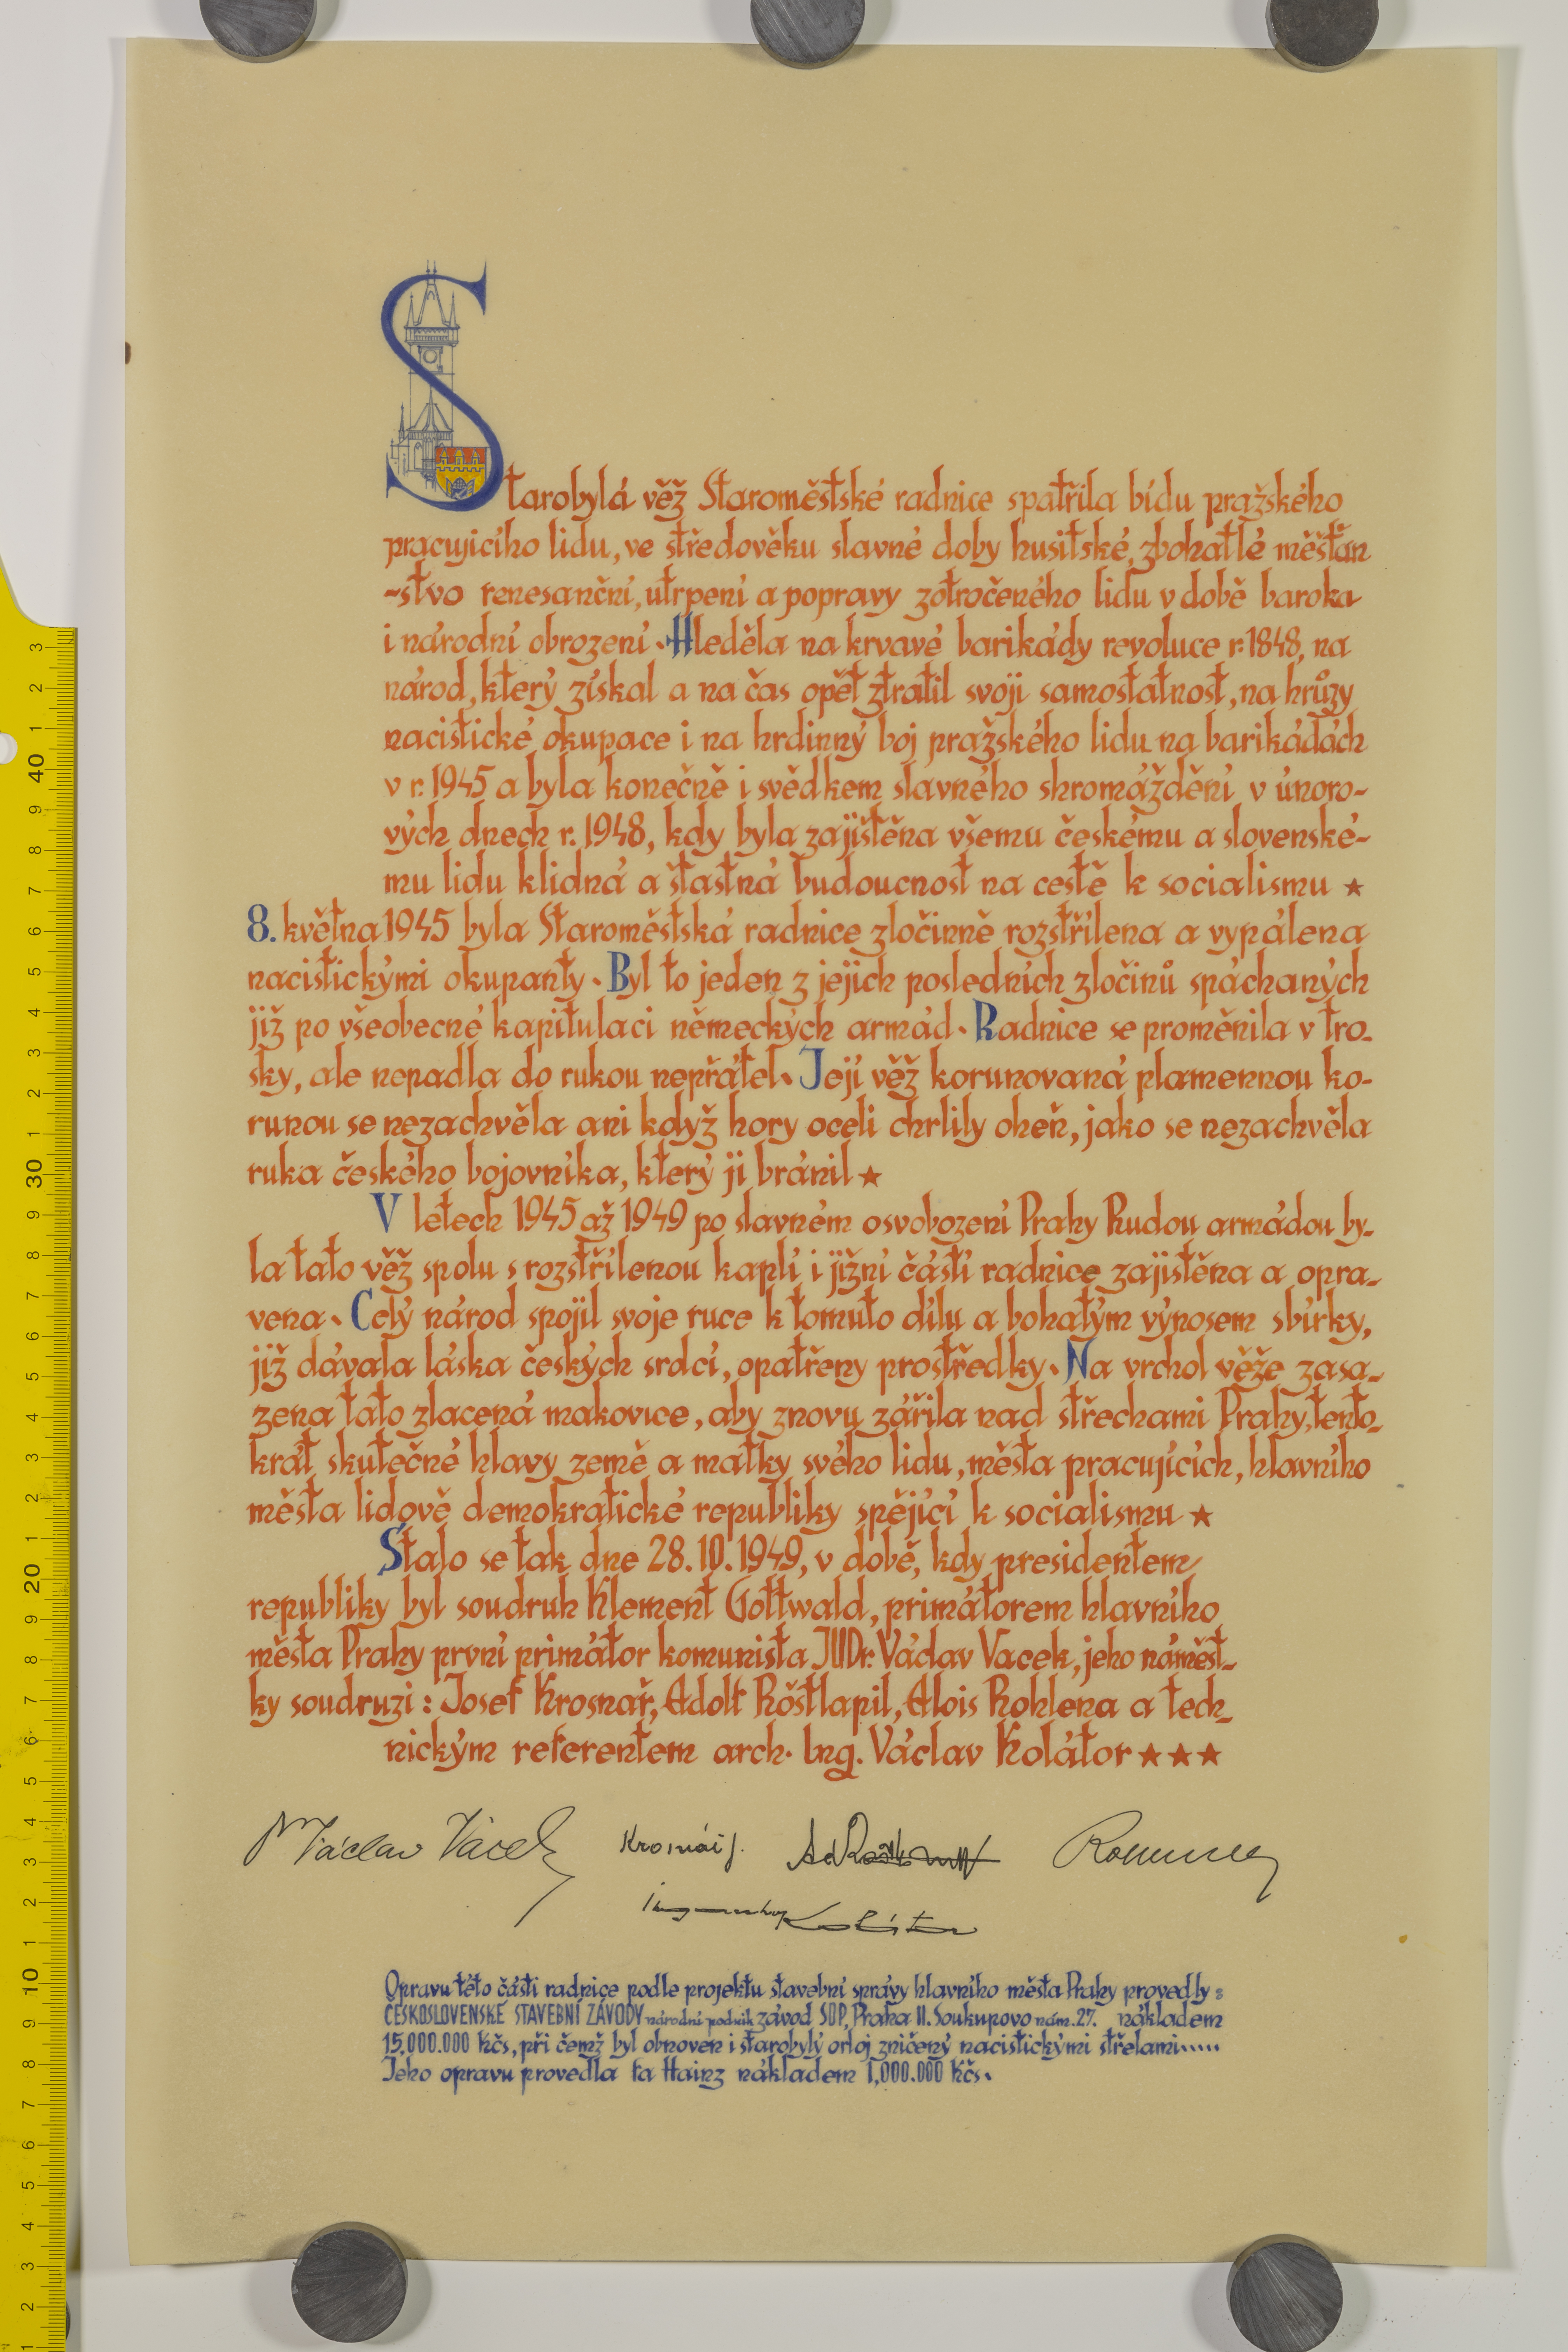 Starobylá věž Staroměstské radnice spatřila bídu pražského
pracujícího lidu, ve středověku slavné doby husitské, zbohatlé měšťan
-stvo renesanční, utrpení a popravy zotročeného lidu v době baroka
i národní obrození. Hleděla na krvavé barikády revoluce r. 1848, na
národ, který získal a na čas opět ztratil svoji samostatnost, na hrůzy
nacistické okupace i na hrdinný boj pražského lidu na barikádách
v r. 1945 a byla konečně i svědkem slavného shromáždění v únoro-
vých dnech r. 1948, kdy byla zajištěna všemu českému a slovenské-
mu lidu klidná a šťastná budoucnost na cestě k socialismu ★
8. května 1945 byla Staroměstská radnice zločinně rozstřílena a vypálena
nacistickými okupanty. Byl to jeden z jejich posledních zločinů spáchaných
již po všeobecné kapitulaci německých armád. Radnice se proměnila v tro-
sky, ale nepadla do rukou nepřátel. Její věž korunovaná plamennou ko-
runou se nezachvěla ani když hory oceli chrlily oheň, jako se nezachvěla
ruka českého bojovníka, který ji bránil ★
V letech 1945 až 1949 po slavném osvobození Prahy Rudou armádou by-
la tato věž spolu s rozstřílenou kaplí i jižní částí radnice zajištěna a opra-
vena. Celý národ spojil svoje ruce k tomuto dílu a bohatým výnosem sbírky,
již dávala láska českých srdcí, opatřeny prostředky. Na vrchol věže zasa-
zena tato zlacená makovice, aby znovu zářila nad střechami Prahy, tento-
krát skutečné hlavy země a matky svého lidu, města pracujících, hlavního
města lidově demokratické republiky spějící k socialismu ★
Stalo se tak dne 28. 10. 1949, v době, kdy presidentem
republiky byl soudruh Klement Gottwald, primátorem hlavního
města Prahy první primátor komunista JUDr. Václav Vacek, jeho náměst-
ky soudruzi: Josef Krosnář, Adolf Röstlapil, Alois Rohlena a tech-
nickým referentem arch. Ing. Václav Kolátor ★★★
Václav Vacek Krosnář J.
Kolátor
Opravu této části radnice podle projektu stavební správy hlavního města Prahy provedly:
ČESKOSLOVENSKÉ STAVEBNÍ ZÁVODY národní podnik závod SDP, Praha II. Soukupovo nám. 27. nákladem
15,000.000 Kčs, při čemž byl obnoven i starobylý orloj zničený nacistickými střelami.....
Jeho opravu provedla fa Hainz nákladem 1,000.000 Kčs.